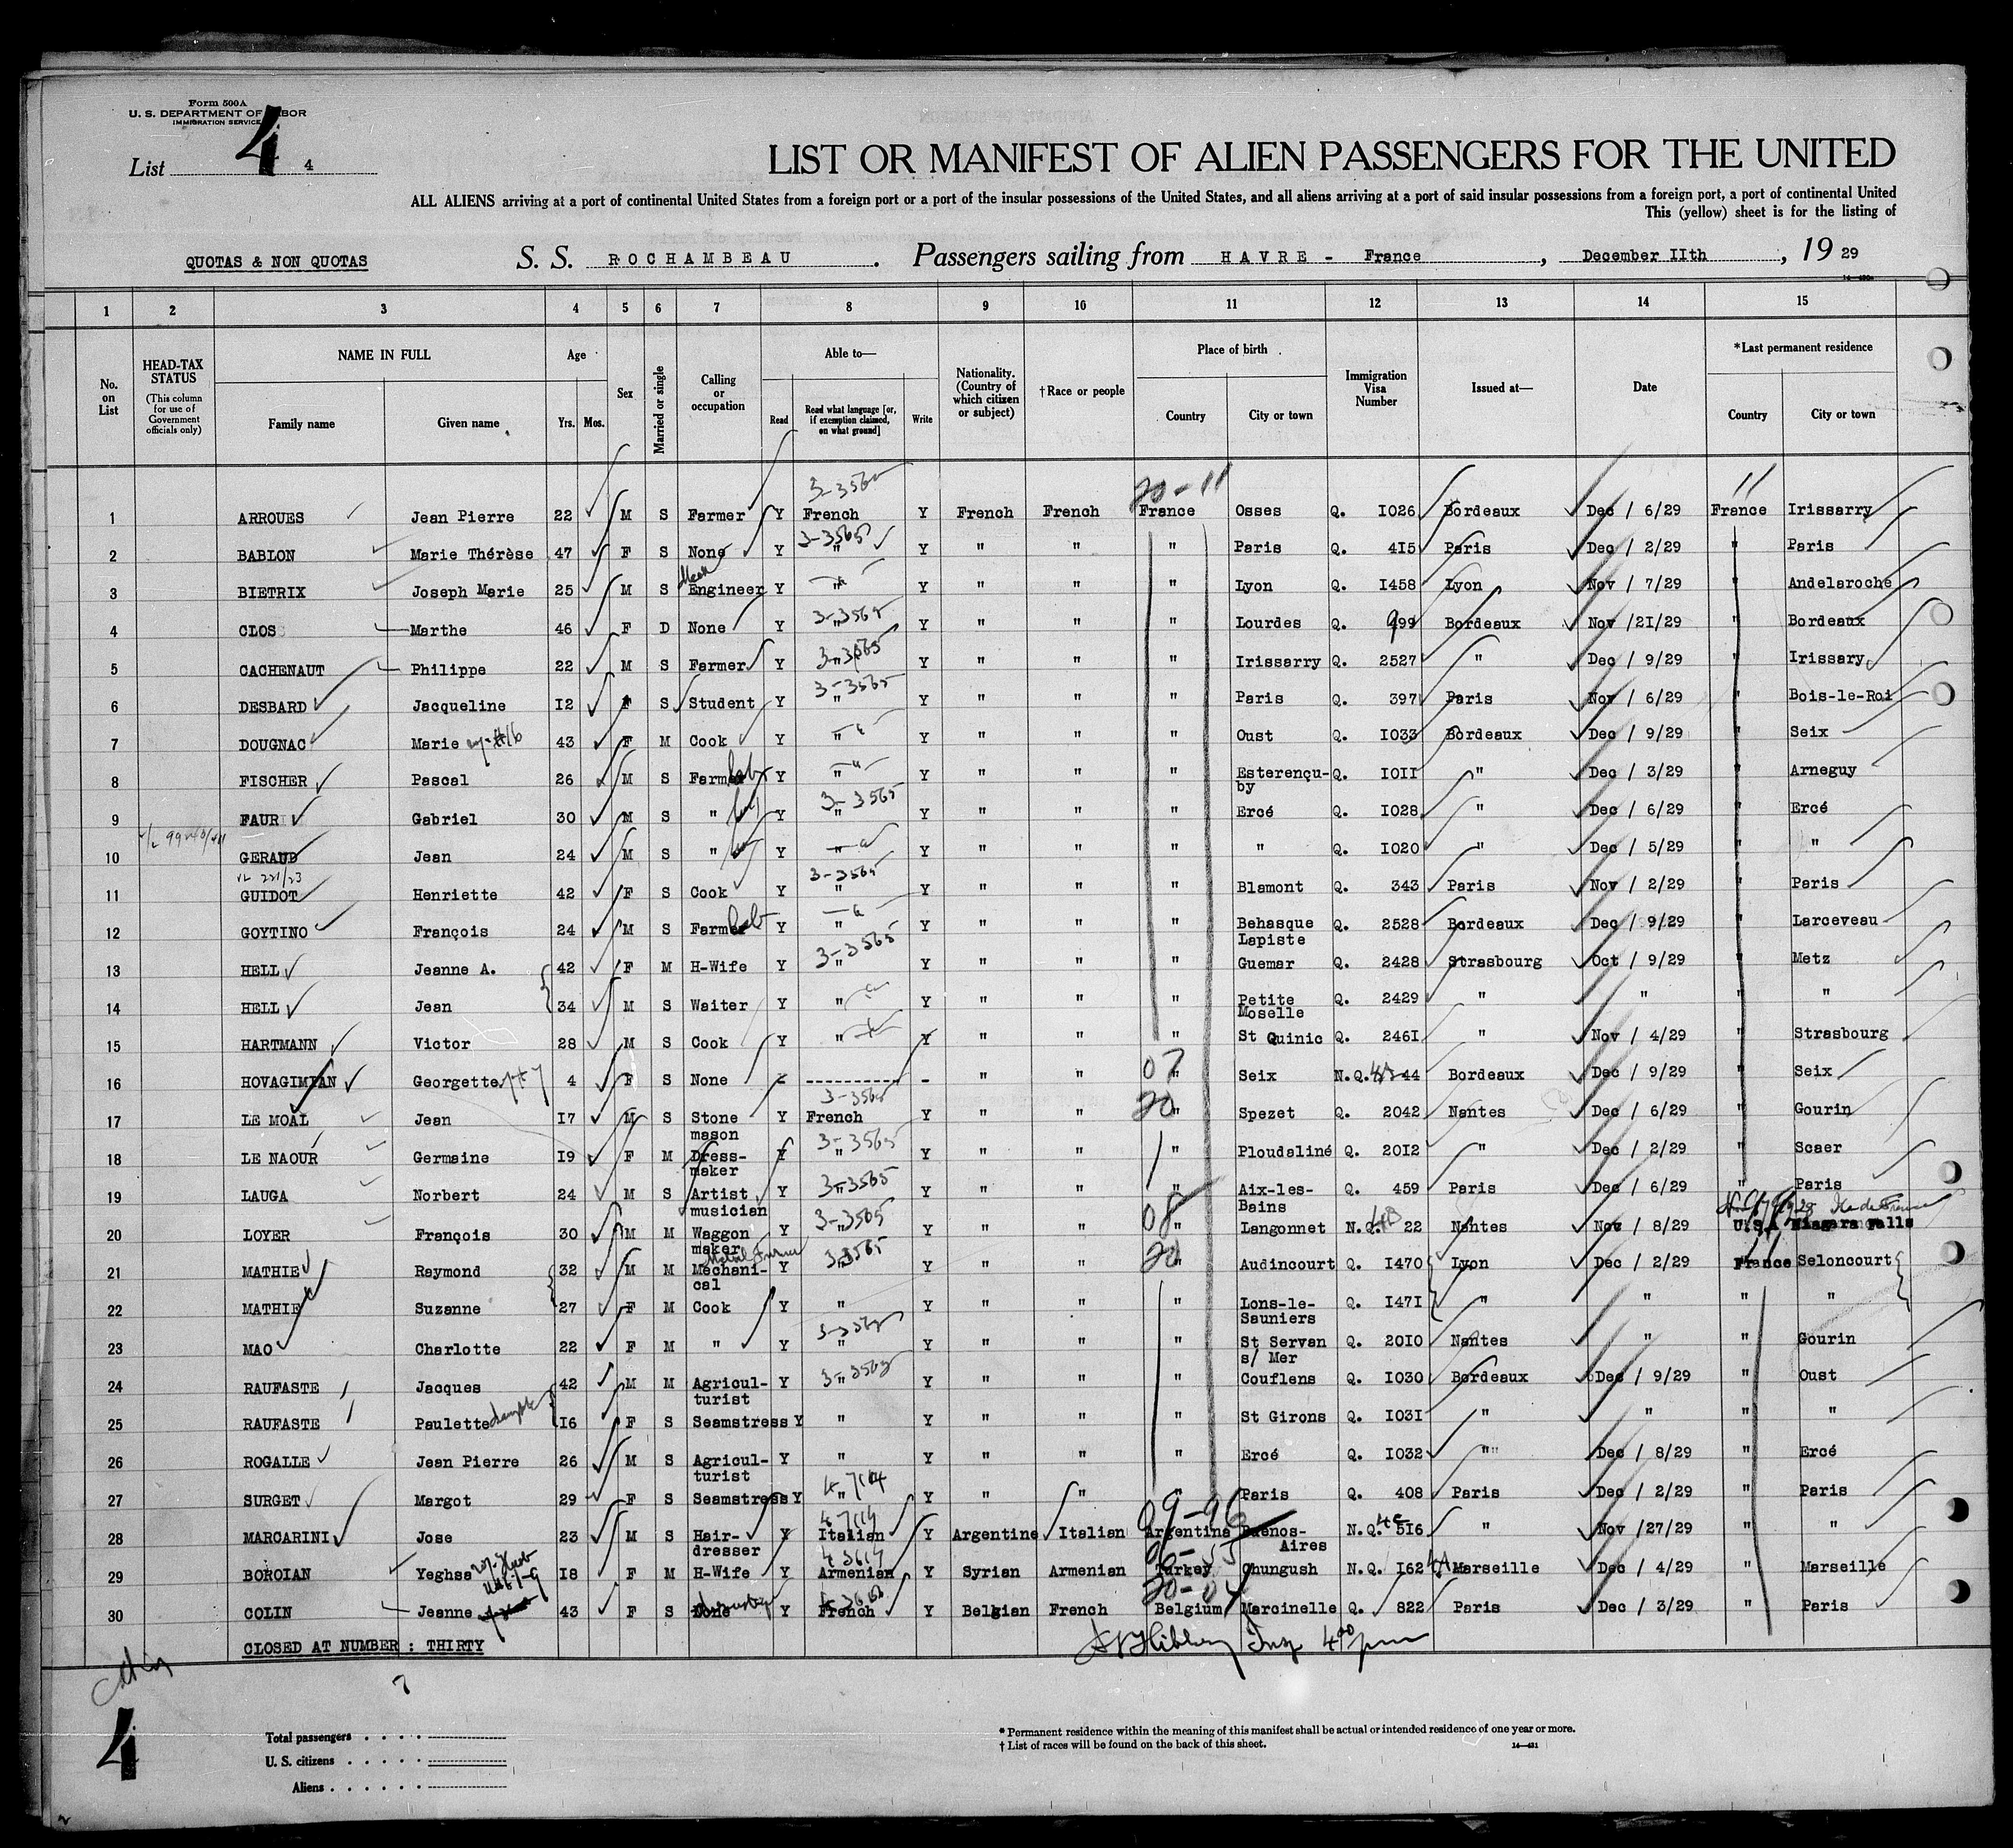 Form 500A
U. S. DEPARTMENT OF LABOR
IMMIGRATION SERVICE
List 4 4
LIST OR MANIFEST OF ALIEN PASSENGERS FOR THE UNITED
ALL ALIENS arriving at a port of continental United States from a foreign port or a port of the insular possessions of the United States, and all aliens arriving at a port of said insular possessions from a foreign port, a port of continental United
This (yellow) sheet is for the listing of
QUOTAS & NON QUOTAS S. S. ROCHAMBEAU. Passengers sailing from HAVRE - France, December IIth, 19 29
1 2 3 4 5 6 7 8 9 10 11 12 13 14 15
No. on List
HEAD-TAX STATUS (This column for use of Government officials only)
NAME IN FULL Family name Given name
Age Yrs. Mos.
Sex
Married or single
Calling or occupation
Able to— Read Read what language [or, if exemption claimed, on what ground] Write
Nationality. (Country of which citizen or subject)
†Race or people
Place of birth Country City or town
Immigration Visa Number
Issued at—
Date
*Last permanent residence Country City or town
3-3565 20-11 11
1 ARROUES Jean Pierre 22 M S Farmer Y French Y French French France Osses Q. I026 Bordeaux Dec / 6/29 France Irissarry
3-3565
2 BABLON Marie Thérèse 47 F S None Y " Y " " " Paris Q. 4I5 Paris Dec / 2/29 " Paris
3 BIETRIX Joseph Marie 25 M S Engineer Y " Y " " " Lyon Q. I458 Lyon Nov / 7/29 " Andelaroche
3-3565
4 CLOS Marthe 46 F D None Y " Y " " " Lourdes Q. 999 Bordeaux Nov /2I/29 " Bordeaux
3-3565
5 CACHENAUT Philippe 22 M S Farmer Y " Y " " " Irissarry Q. 2527 " Dec / 9/29 " Irissary
3-3565
6 DESBARD Jacqueline I2 F S Student Y " Y " " " Paris Q. 397 Paris Nov / 6/29 " Bois-le-Roi
7 DOUGNAC Marie #16 43 F M Cook Y " Y " " " Oust Q. I033 Bordeaux Dec / 9/29 " Seix
8 FISCHER Pascal 26 M S Farmer lab Y " Y " " " Esterençu-by Q. I0II " Dec / 3/29 " Arneguy
3-3565
9 FAUR Gabriel 30 M S " Y " Y " " " Ercé Q. I028 " Dec / 6/29 " Ercé
10 GERAUD Jean 24 M S " Y " Y " " " " Q. I020 " Dec / 5/29 " "
3-3565
11 GUIDOT Henriette 42 F S Cook Y " Y " " " Blamont Q. 343 Paris Nov / 2/29 " Paris
12 GOYTINO François 24 M S Farmer lab Y " Y " " " Behasque Lapiste Q. 2528 Bordeaux Dec / 9/29 " Larceveau
3-3565
13 HELL Jeanne A. 42 F M H-Wife Y " Y " " " Guemar Q. 2428 Strasbourg Oct / 9/29 " Metz
14 HELL Jean 34 M S Waiter Y " Y " " " Petite Moselle Q. 2429 " " " "
15 HARTMANN Victor 28 M S Cook Y " Y " " " St Quinic Q. 246I " Nov / 4/29 " Strasbourg
07
16 HOVAGIMIAN Georgette #7 4 F S None - ------------ - " " " Seix N.Q. 44 Bordeaux Dec / 9/29 " Seix
3-3565 20
17 LE MOAL Jean I7 M S Stone mason Y French Y " " " Spezet Q. 2042 Nantes Dec / 6/29 " Gourin
3-3565
18 LE NAOUR Germaine I9 F M Dress-maker Y " Y " " " Ploudaliné Q. 20I2 " Dec / 2/29 " Scaer
3-3565
19 LAUGA Norbert 24 M S Artist musician Y " Y " " " Aix-les-Bains Q. 459 Paris Dec / 6/29 " Paris
3-3565 08
20 LOYER François 30 M M Waggon maker Y " Y " " " Langonnet N.Q. 22 Nantes Nov / 8/29 U.S.A Niagara Falls
3-3565 20 11
21 MATHIE Raymond 32 M M Mechani-cal Y " Y " " " Audincourt Q. I470 Lyon Dec / 2/29 France Seloncourt
22 MATHIE Suzanne 27 F M Cook Y " Y " " " Lons-le-Sauniers Q. I47I " " " "
3-3565
23 MAO Charlotte 22 F M " Y " Y " " " St Servan s/ Mer Q. 20I0 Nantes " " Gourin
3-3565
24 RAUFASTE Jacques 42 M M Agricul-turist Y " Y " " " Couflens Q. I030 Bordeaux Dec / 9/29 " Oust
25 RAUFASTE Paulette I6 F S Seamstress Y " Y " " " St Girons Q. I03I " " " "
26 ROGALLE Jean Pierre 26 M S Agricul-turist Y " Y " " " Ercé Q. I032 " Dec / 8/29 " Ercé
27 SURGET Margot 29 F S Seamstress Y " Y " " " Paris Q. 408 Paris Dec / 2/29 " Paris
09-96
28 MARCARINI Jose 23 M S Hair-dresser Y Italian Y Argentine Italian Argentina Buenos-Aires N.Q. 5I6 " Nov /27/29 " "
29 BOROIAN Yeghsa I8 F M H-Wife Y Armenian Y Syrian Armenian Turkey Chungush N.Q. I62 Marseille Dec / 4/29 " Marseille
20-04
30 COLIN Jeanne 43 F S None Y French Y Belgian French Belgium Marcinelle Q. 822 Paris Dec / 3/29 " Paris
CLOSED AT NUMBER : THIRTY
4
Total passengers
U. S. citizens
Aliens
* Permanent residence within the meaning of this manifest shall be actual or intended residence of one year or more.
† List of races will be found on the back of this sheet.